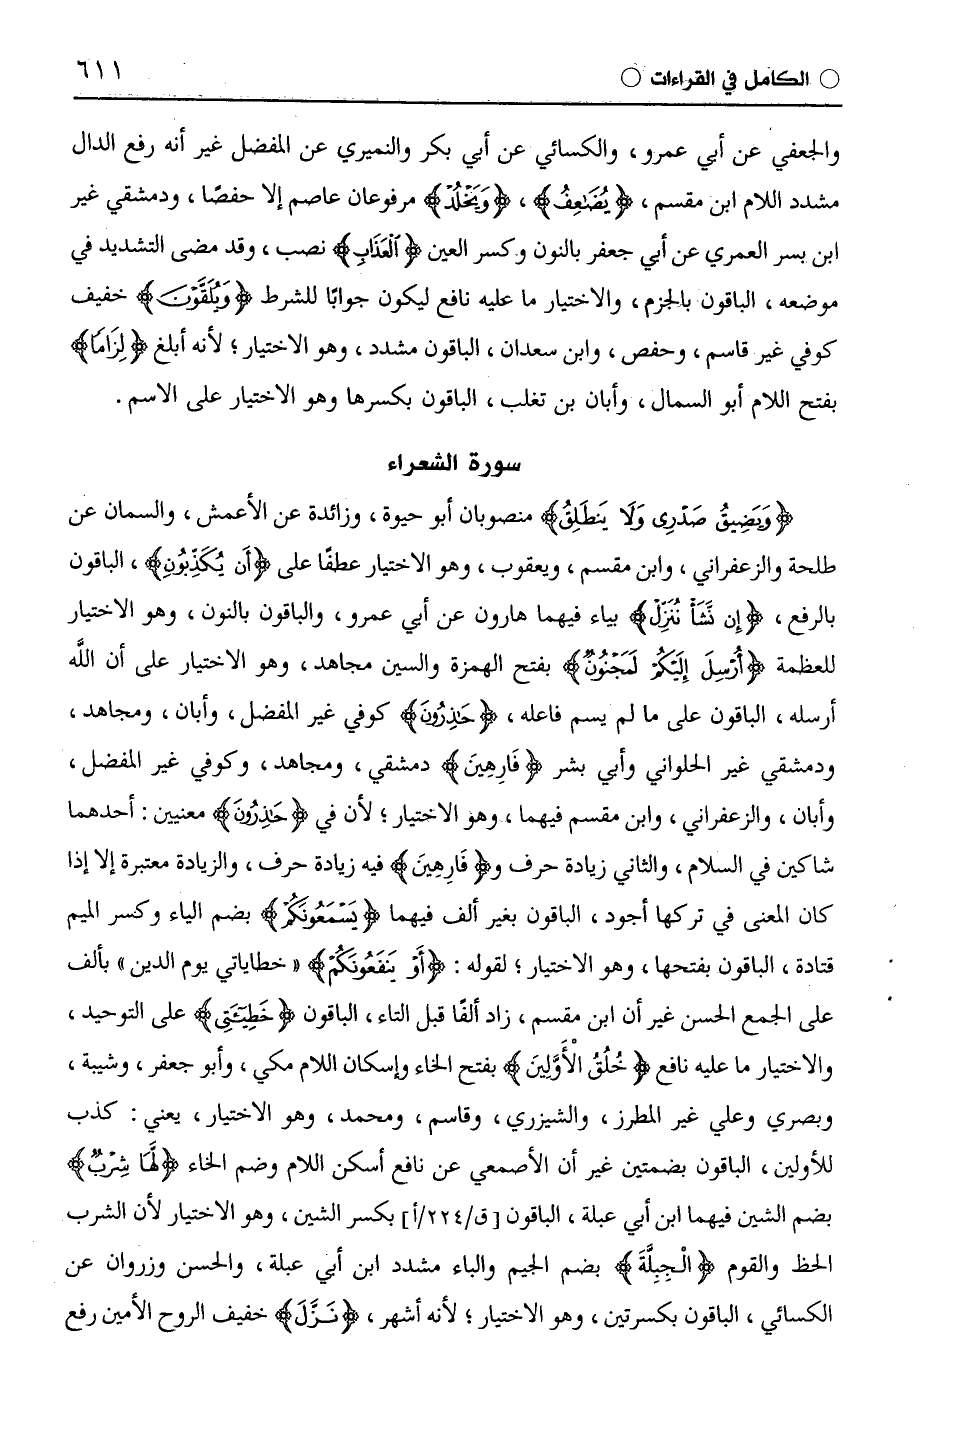 ○ الكامل في القراءات ○
٦١١
والجعفي عن أبي عمرو ، والكسائي عن أبي بكر والنميري عن المفضل غير أنه رفع الدال
مشدد اللام ابن مقسم ، ﴿يُضَٰعِفُ﴾ ، ﴿وَيَخْلُدْ﴾ مرفوعان عاصم إلا حفصًا ، ودمشقي غير
ابن بسر العمري عن أبي جعفر بالنون وكسر العين ﴿ٱلْعَذَابِ﴾ نصب ، وقد مضى التشديد في
موضعه ، الباقون بالجزم ، والاختيار ما عليه نافع ليكون جوابًا للشرط ﴿وَيُلَقَّوْنَ﴾ خفيف
كوفي غير قاسم ، وحفص ، وابن سعدان ، الباقون مشدد ، وهو الاختيار ؛ لأنه أبلغ ﴿لِزَامًا﴾
بفتح اللام أبو السمال ، وأبان بن تغلب ، الباقون بكسرها وهو الاختيار على الاسم .
سورة الشعراء
﴿وَيَضِيقُ صَدْرِى وَلَا يَنطَلِقُ﴾ منصوبان أبو حيوة ، وزائدة عن الأعمش ، والسمان عن
طلحة والزعفراني ، وابن مقسم ، ويعقوب ، وهو الاختيار عطفًا على ﴿أَن يُكَذِّبُونِ﴾ ، الباقون
بالرفع ، ﴿إِن نَّشَأْ نُنَزِّلْ﴾ بياء فيهما هارون عن أبي عمرو ، والباقون بالنون ، وهو الاختيار
للعظمة ﴿أُرْسِلَ إِلَيْكُمْ لَمَجْنُونٌ﴾ بفتح الهمزة والسين مجاهد ، وهو الاختيار على أن اللَّه
أرسله ، الباقون على ما لم يسم فاعله ، ﴿حَٰذِرُونَ﴾ كوفي غير المفضل ، وأبان ، ومجاهد ،
ودمشقي غير الحلواني وأبي بشر ﴿فَارِهِينَ﴾ دمشقي ، ومجاهد ، وكوفي غير المفضل ،
وأبان ، والزعفراني ، وابن مقسم فيهما ، وهو الاختيار ؛ لأن في ﴿حَٰذِرُونَ﴾ معنيين : أحدهما
شاكين في السلام ، والثاني زيادة حرف و﴿فَارِهِينَ﴾ فيه زيادة حرف ، والزيادة معتبرة إلا إذا
كان المعنى في تركها أجود ، الباقون بغير ألف فيهما ﴿يَسْمَعُونَكُمْ﴾ بضم الياء وكسر الميم
قتادة ، الباقون بفتحها ، وهو الاختيار ؛ لقوله : ﴿أَوْ يَنفَعُونَكُمْ﴾ « خطاياتي يوم الدين » بألف
على الجمع الحسن غير أن ابن مقسم ، زاد ألفًا قبل التاء ، الباقون ﴿خَطِيٓـَٔتِى﴾ على التوحيد ،
والاختيار ما عليه نافع ﴿خُلُقُ الْأَوَّلِينَ﴾ بفتح الخاء وإسكان اللام مكي ، وأبو جعفر ، وشيبة ،
وبصري وعلي غير المطرز ، والشيزري ، وقاسم ، ومحمد ، وهو الاختيار ، يعني : كذب
للأولين ، الباقون بضمتين غير أن الأصمعي عن نافع أسكن اللام وضم الخاء ﴿لَّهَا شِرْبٌ﴾
بضم الشين فيهما ابن أبي عبلة ، الباقون [ق/٢٢٤/أ] بكسر الشين ، وهو الاختيار لأن الشرب
الحظ والقوم ﴿الْجِبِلَّةَ﴾ بضم الجيم والباء مشدد ابن أبي عبلة ، والحسن وزروان عن
الكسائي ، الباقون بكسرتين ، وهو الاختيار ؛ لأنه أشهر ، ﴿نَزَّلَ﴾ خفيف الروح الأمين رفع